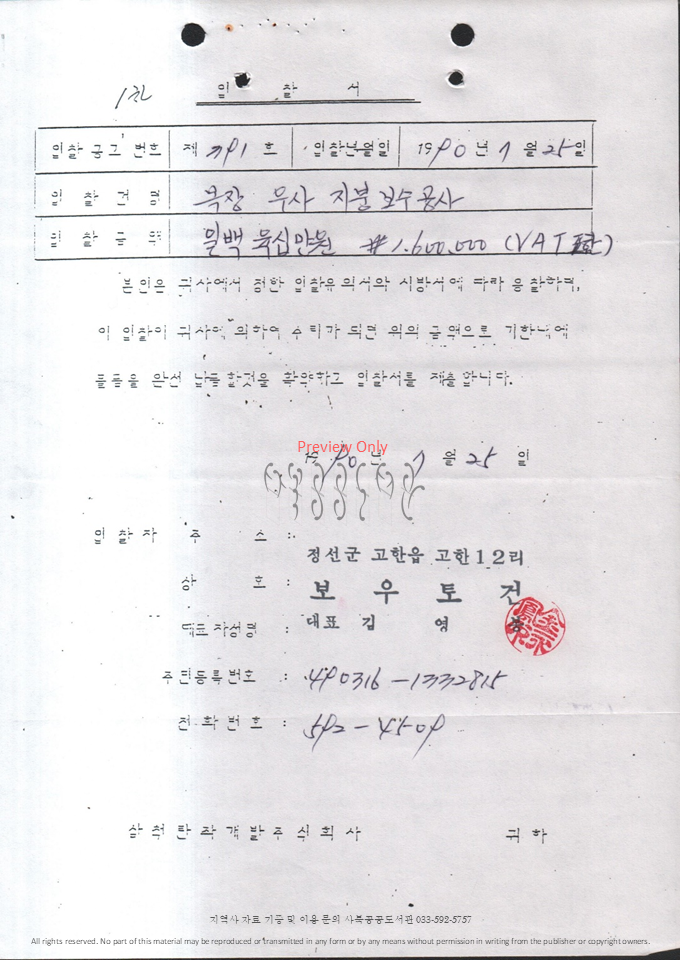 1차 입 찰 서
입찰공고 번호 제 791 호 입찰년월일 1990년 7월 25일
입 찰 건 명 목장 우사 지붕 보수공사
입 찰 금 액 일백 육십만원 ₩1.600.000 (VAT
본인은 귀사에서 정한 입찰유의서와 시방서에 따라 응찰하며,
이 입찰이 귀사에 의하여 수락가 되면 위의 금액으로 기한내에
물품을 완전 납품할것을 확약하고 입찰서를 제출합니다.
Preview Only
1990년 7월 25일
입 찰 자 주 소 :
정선군 고한읍 고한12리
상 호 : 보 우 토 건
대표자성명 : 대표 김 영
주민등록번호 : 490316-1332815
전 화 번 호 : 592-4509
삼척탄좌개발주식회사 귀하
지역사 자료 기증 및 이용 문의 사북공공도서관 033-592-5757
All rights reserved. No part of this material may be reproduced or transmitted in any form or by any means without permission in writing from the publisher or copyright owners.